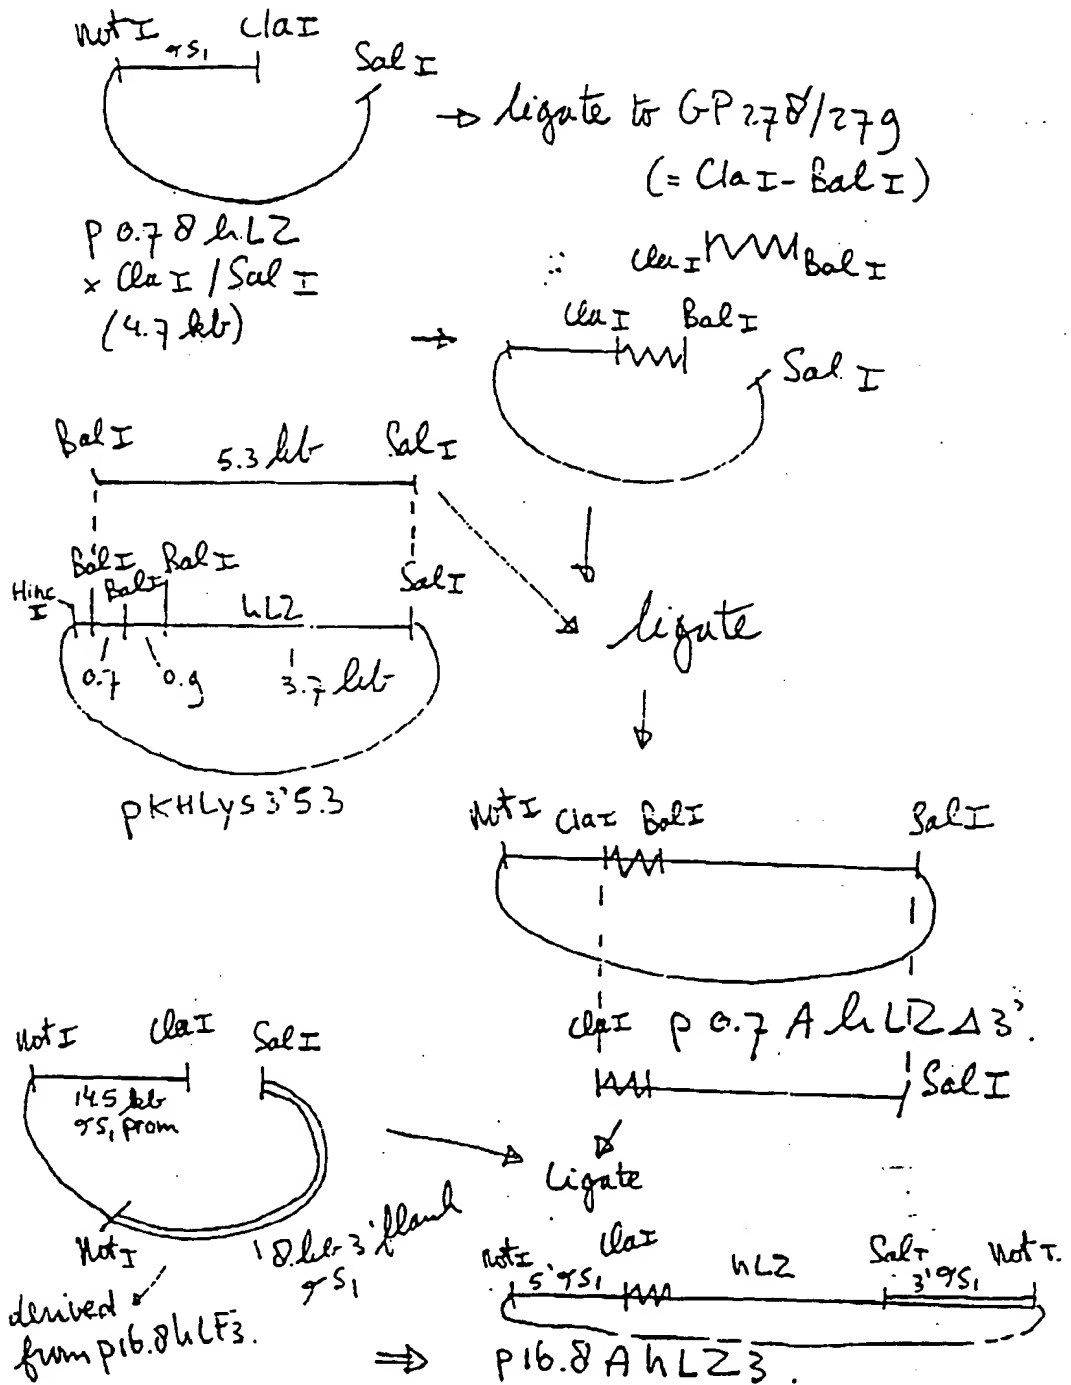 Not I Cla I
σS₁
Sal I
→ ligate to GP 278/279
(= Cla I - Bal I)
p 0.7 8 hLZ
x Cla I / Sal I
(4.7 kb)
Cla I Bal I
→
Cla I Bal I
Sal I
Bal I 5.3 kb Sal I
Bal I Bal I
Hinc I Bal I hLZ Sal I
0.7 0.9 3.7 kb
pKHLys 3'5.3
ligate
Not I Cla I Bal I Sal I
p 0.7 A hLZ Δ3'.
Cla I Sal I
Not I Cla I Sal I
14.5 kb
σS₁ prom
Not I
8 kb 3' flank
σS₁
derived
from p16.8hLF3.
Ligate
Not I Cla I hLZ Sal I Not I.
5' σS₁ 3' σS₁
⇒ p16.8 A hLZ3.